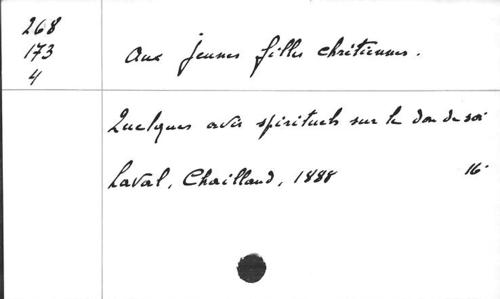 268
173
4
Aux jeunes filles chrétiennes.
Quelques avis spirituels sur le don de soi
Laval, Chailland, 1888 16°